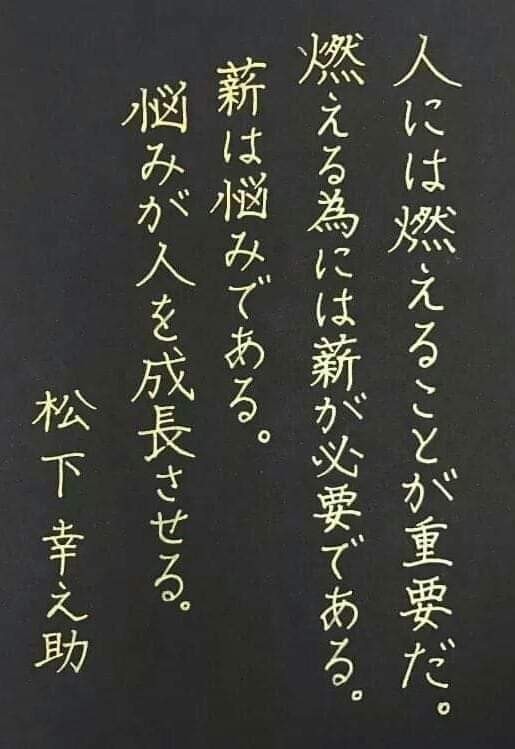 人には燃えることが重要だ。
燃える為には薪が必要である。
薪は悩みである。
悩みが人を成長させる。
松下幸之助